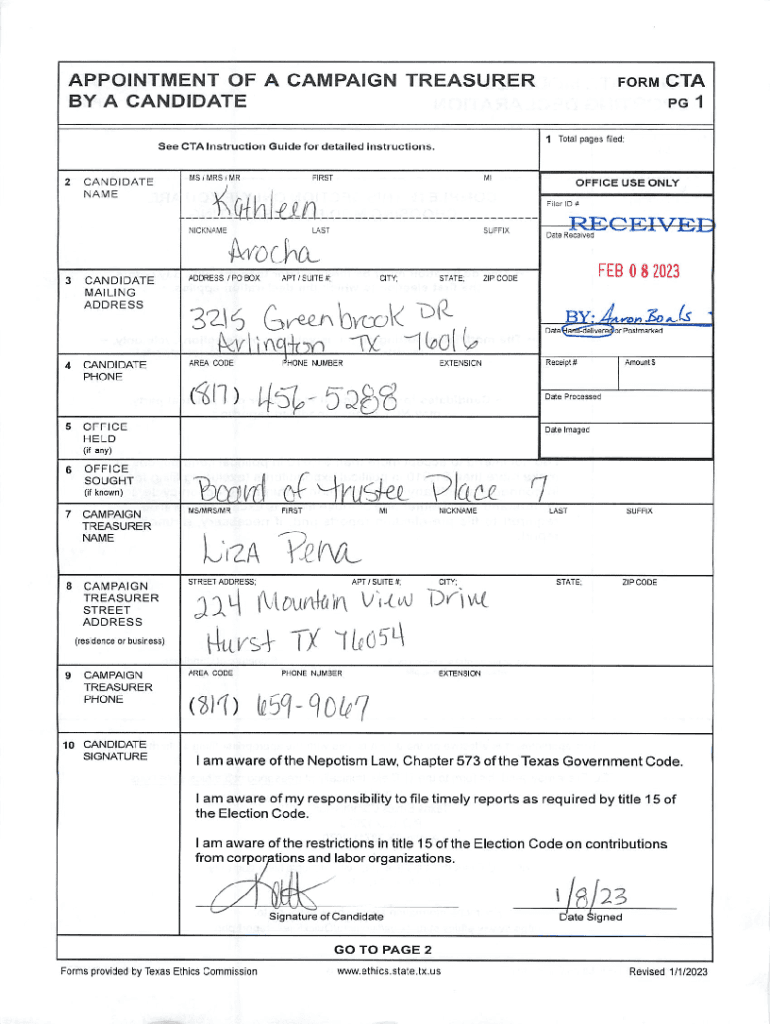 APPOINTMENT OF A CAMPAIGN TREASURER
BY A CANDIDATE
FORM CTA
PG 1
See CTA Instruction Guide for detailed instructions.
1 Total pages filed:
2 CANDIDATE
NAME
MS / MRS / MR FIRST MI
Kathleen
NICKNAME LAST SUFFIX
Arocha
OFFICE USE ONLY
Filer ID #
RECEIVED
Date Received
FEB 08 2023
BY: Aaron Boals
Date Hand-delivered or Postmarked
3 CANDIDATE
MAILING
ADDRESS
ADDRESS / PO BOX APT / SUITE #; CITY; STATE; ZIP CODE
3215 Greenbrook DR
Arlington TX 76016
4 CANDIDATE
PHONE
AREA CODE PHONE NUMBER EXTENSION
(817) 456-5288
Receipt # Amount $
Date Processed
Date Imaged
5 OFFICE
HELD
(if any)
6 OFFICE
SOUGHT
(if known)
Board of trustee Place 7
7 CAMPAIGN
TREASURER
NAME
MS/MRS/MR FIRST MI NICKNAME LAST SUFFIX
LIZA Pena
8 CAMPAIGN
TREASURER
STREET
ADDRESS
(residence or business)
STREET ADDRESS; APT / SUITE #; CITY; STATE; ZIP CODE
224 Mountain View Drive
Hurst TX 76054
9 CAMPAIGN
TREASURER
PHONE
AREA CODE PHONE NUMBER EXTENSION
(817) 659-9067
10 CANDIDATE
SIGNATURE
I am aware of the Nepotism Law, Chapter 573 of the Texas Government Code.
I am aware of my responsibility to file timely reports as required by title 15 of
the Election Code.
I am aware of the restrictions in title 15 of the Election Code on contributions
from corporations and labor organizations.
1/8/23
Signature of Candidate Date Signed
GO TO PAGE 2
Forms provided by Texas Ethics Commission www.ethics.state.tx.us Revised 1/1/2023